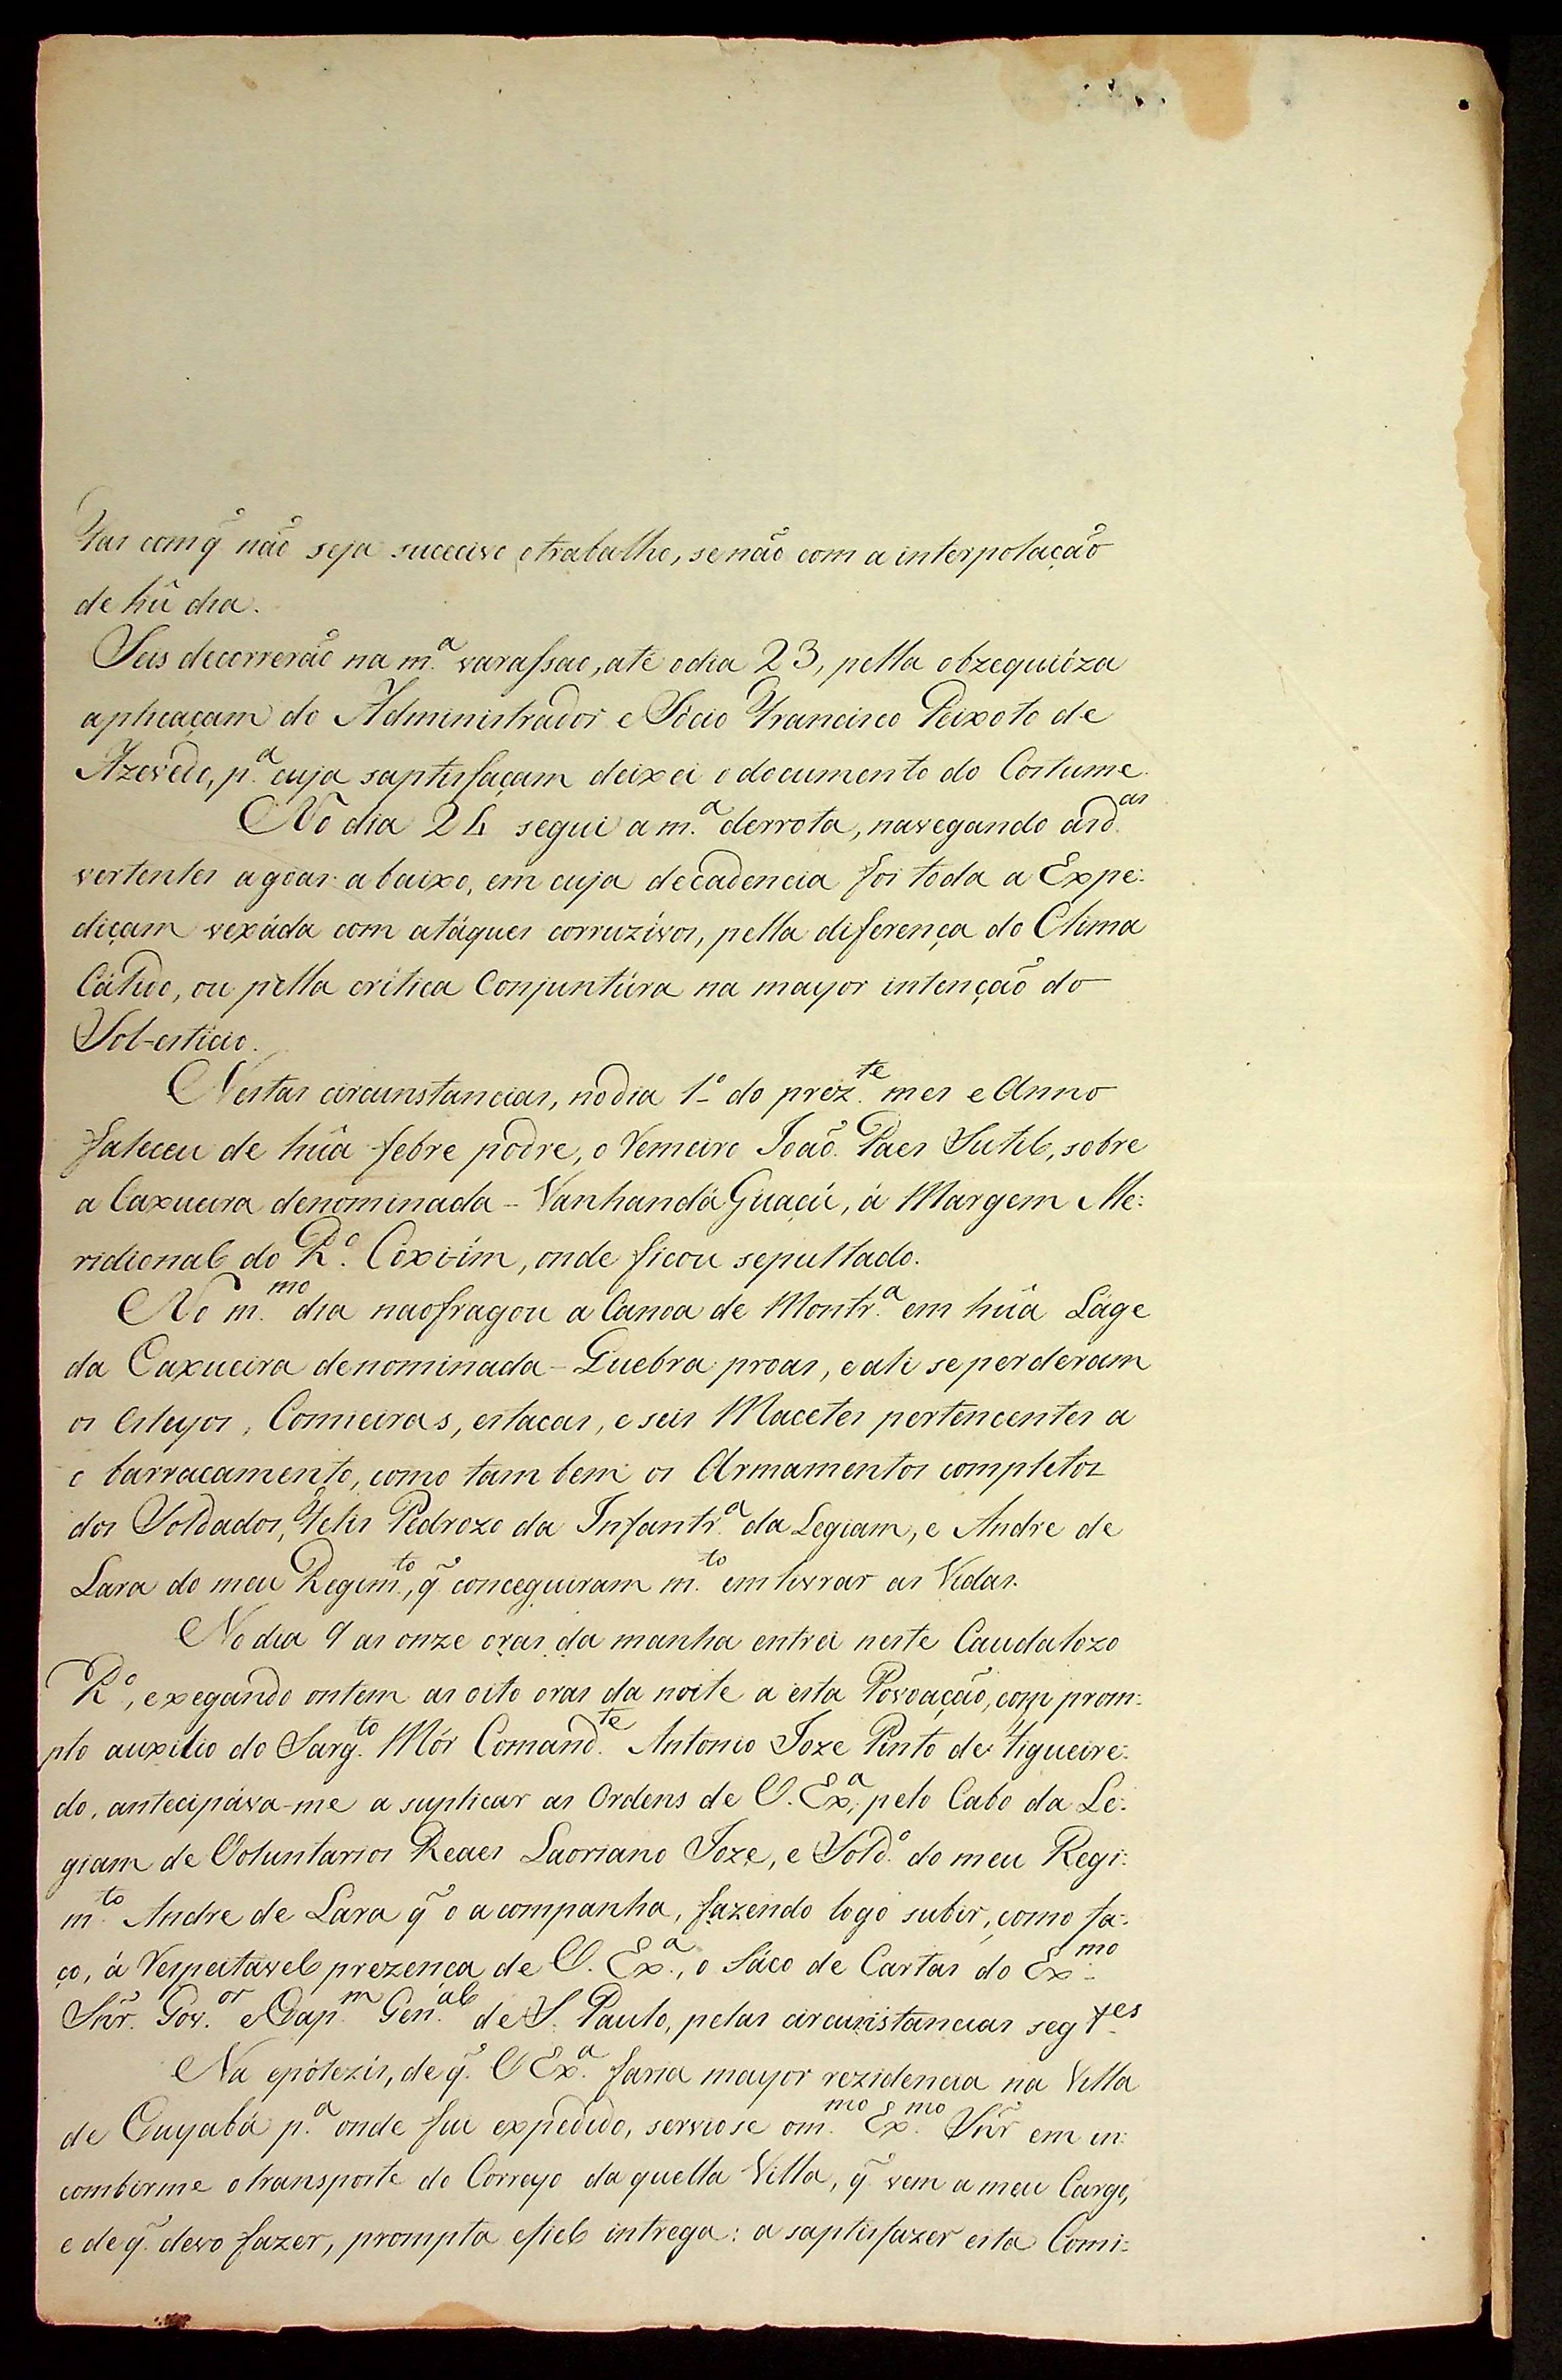 tas com q̃ não seja sucecivo o trabalho, senão com a interpolação
de hũ dia.
Seis decorrerão na m.ª varassao, até o dia 23, pella obzequióza
aplicaçam do Administrador e Sócio Francisco Peixoto de
Azevedo, p.ª cuja saptisfaçam deixei o documento do Costume.
No dia 24 segui a m.ª derrota, navegando as d.as
vertentes agoas abaixo, em cuja decadencia foi toda a Expe:
diçam vexáda com atáques corruzívos, pella diferença do Clima
Cálido, ou pella crítica Conjuntúra na mayor intenção do
Sol-esticio.
Nestas circunstancias, no dia 1.º do prez.te mes e Anno
faleceu de hũa febre podre, o Remeiro João Paes Sutil, sobre
a Caxueira denominada - Vanhandá Guaçú, á Margem Me:
ridional do R.º Coxi-im, onde ficou sepultado.
No m.mo dia naofragou a Canoa de Montr.ª em hũa Láge
da Caxueira denominada - Quebra proas, e ali se perderam
os Esteyos, Comieiras, estacas, e seis Macetes pertencentes a
o barracamento, como tam bem os Armamentos completos
dos Soldados, Felis Pedrozo da Infantr.ª da Legiam, e Andre de
Lara do meu Regim.to, q̃ conceguiram m.to em livrar as Vidas.
No dia 9 as onze oras da manha entrei neste Caudalozo
R.º, exegando ontem as oito oras da noite a esta Povoação, com prom:
pto auxilio do Sarg.to Mór Comand.te Antonio Joze Pinto de Figueire:
do, antecipáva-me a suplicar as Ordens de V. Ex.ª, pelo Cabo da Le:
giam de Voluntarios Reaes Laoriano Joze, e Sold.º do meu Regi:
m.to Andre de Lara q̃ o acompanha, fazendo logo subir, como fa:
ço, á Respeitavel prezença de V. Ex.ª, o Sáco de Cartas do Ex.mo
Snr̃. Gov.or e Cap.m Gen.al de S. Paulo, pelas circunstancias seg.tes
Na epótezis, de q̃ V Ex.ª faria mayor rezidencia na Villa
de Cuyabá p.ª onde fui expedido, servio se o m.mo Ex.mo Snr̃ em in:
combirme o transporte do Correyo daquella Villa, q̃ vem a meu Cargo,
e de q̃ devo fazer, prompta e fiel intrega: a saptisfazer esta Comi: